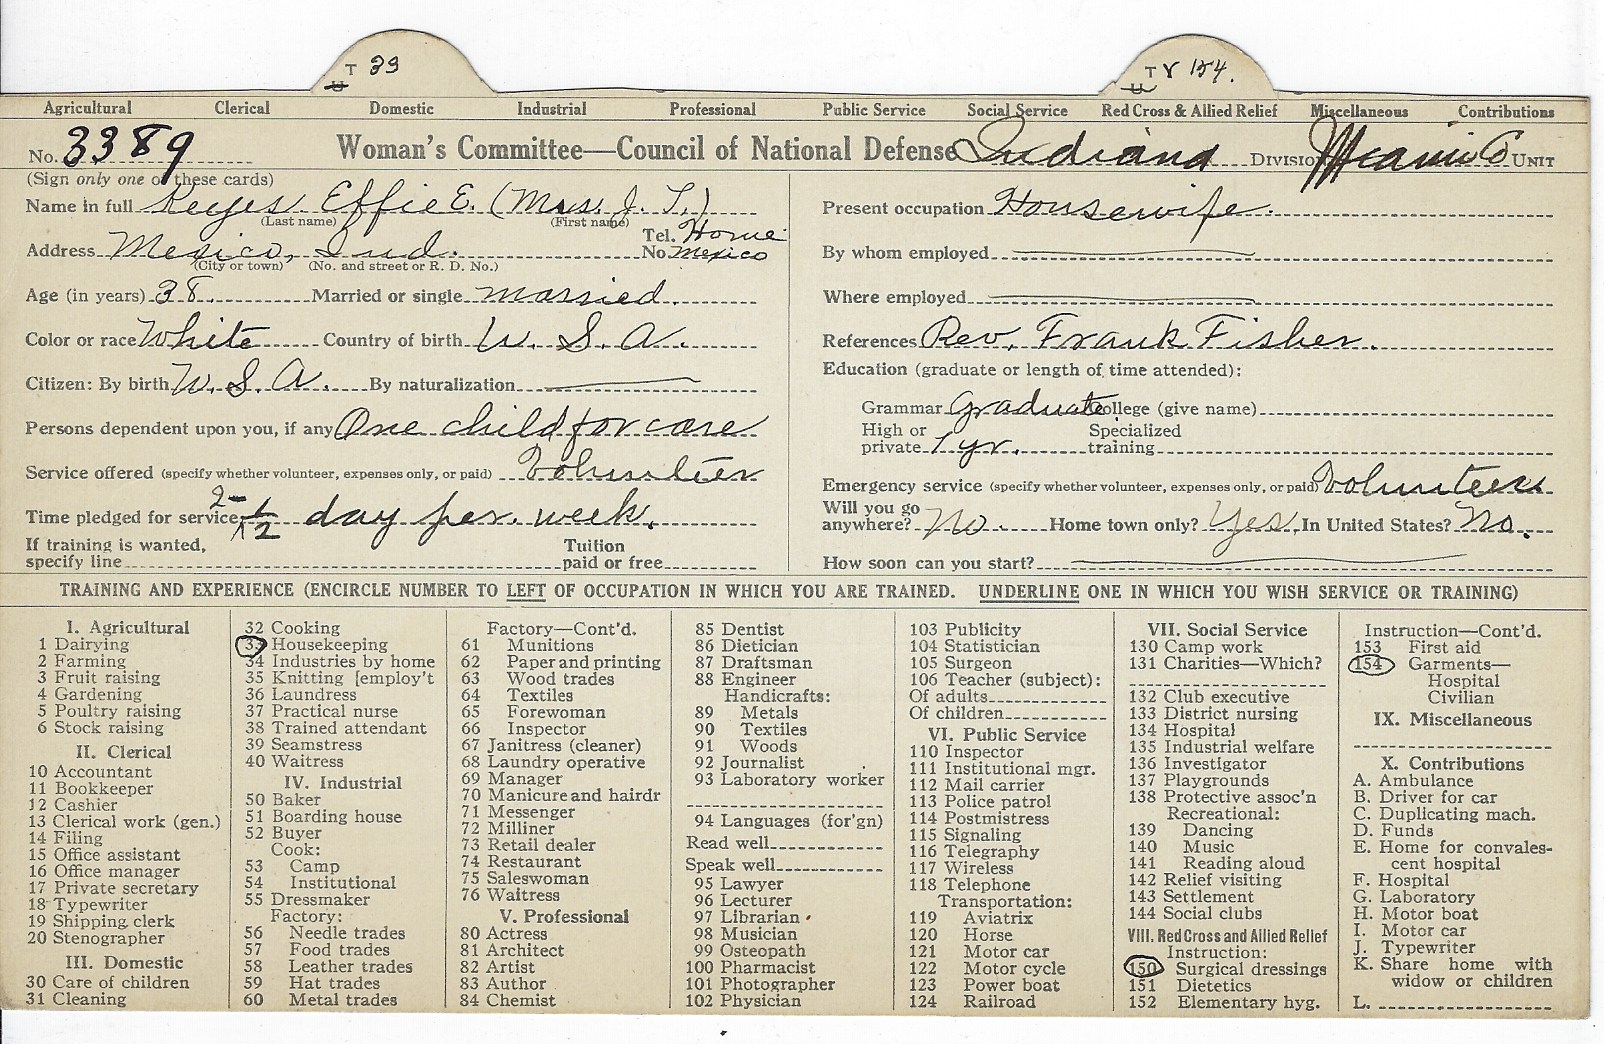 T 33
U
T V 154.
U
Agricultural Clerical Domestic Industrial Professional Public Service Social Service Red Cross & Allied Relief Miscellaneous Contributions
No. 3389 Woman's Committee—Council of National Defense Indiana Division Miami Co Unit
(Sign only one of these cards)
Name in full Keyes Effie E. (Mrs. J. T.)
(Last name) (First name)
Address Mexico, Ind. Tel. No. Home Mexico
(City or town) (No. and street or R. D. No.)
Age (in years) 38. Married or single married.
Color or race White Country of birth U. S. A.
Citizen: By birth U. S. A. By naturalization
Persons dependent upon you, if any One child for care
Service offered (specify whether volunteer, expenses only, or paid) Volunteer
Time pledged for service 2-1/2 day per. week.
If training is wanted, specify line Tuition paid or free
Present occupation Housewife.
By whom employed
Where employed
References Rev. Frank Fisher.
Education (graduate or length of time attended):
Grammar Graduate College (give name)
High or private 1 yr. Specialized training
Emergency service (specify whether volunteer, expenses only, or paid) Volunteer
Will you go anywhere? No. Home town only? Yes. In United States? No.
How soon can you start?
TRAINING AND EXPERIENCE (ENCIRCLE NUMBER TO LEFT OF OCCUPATION IN WHICH YOU ARE TRAINED. UNDERLINE ONE IN WHICH YOU WISH SERVICE OR TRAINING)
I. Agricultural
1 Dairying
2 Farming
3 Fruit raising
4 Gardening
5 Poultry raising
6 Stock raising
II. Clerical
10 Accountant
11 Bookkeeper
12 Cashier
13 Clerical work (gen.)
14 Filing
15 Office assistant
16 Office manager
17 Private secretary
18 Typewriter
19 Shipping clerk
20 Stenographer
III. Domestic
30 Care of children
31 Cleaning
32 Cooking
33 Housekeeping
34 Industries by home
35 Knitting [employ't
36 Laundress
37 Practical nurse
38 Trained attendant
39 Seamstress
40 Waitress
IV. Industrial
50 Baker
51 Boarding house
52 Buyer
Cook:
53 Camp
54 Institutional
55 Dressmaker
Factory:
56 Needle trades
57 Food trades
58 Leather trades
59 Hat trades
60 Metal trades
Factory—Cont'd.
61 Munitions
62 Paper and printing
63 Wood trades
64 Textiles
65 Forewoman
66 Inspector
67 Janitress (cleaner)
68 Laundry operative
69 Manager
70 Manicure and hairdr
71 Messenger
72 Milliner
73 Retail dealer
74 Restaurant
75 Saleswoman
76 Waitress
V. Professional
80 Actress
81 Architect
82 Artist
83 Author
84 Chemist
85 Dentist
86 Dietician
87 Draftsman
88 Engineer
Handicrafts:
89 Metals
90 Textiles
91 Woods
92 Journalist
93 Laboratory worker
94 Languages (for'gn)
Read well
Speak well
95 Lawyer
96 Lecturer
97 Librarian
98 Musician
99 Osteopath
100 Pharmacist
101 Photographer
102 Physician
103 Publicity
104 Statistician
105 Surgeon
106 Teacher (subject):
Of adults
Of children
VI. Public Service
110 Inspector
111 Institutional mgr.
112 Mail carrier
113 Police patrol
114 Postmistress
115 Signaling
116 Telegraphy
117 Wireless
118 Telephone
Transportation:
119 Aviatrix
120 Horse
121 Motor car
122 Motor cycle
123 Power boat
124 Railroad
VII. Social Service
130 Camp work
131 Charities—Which?
132 Club executive
133 District nursing
134 Hospital
135 Industrial welfare
136 Investigator
137 Playgrounds
138 Protective assoc'n
Recreational:
139 Dancing
140 Music
141 Reading aloud
142 Relief visiting
143 Settlement
144 Social clubs
VIII. Red Cross and Allied Relief
Instruction:
150 Surgical dressings
151 Dietetics
152 Elementary hyg.
Instruction—Cont'd.
153 First aid
154 Garments—
Hospital
Civilian
IX. Miscellaneous
X. Contributions
A. Ambulance
B. Driver for car
C. Duplicating mach.
D. Funds
E. Home for convales-
cent hospital
F. Hospital
G. Laboratory
H. Motor boat
I. Motor car
J. Typewriter
K. Share home with
widow or children
L.